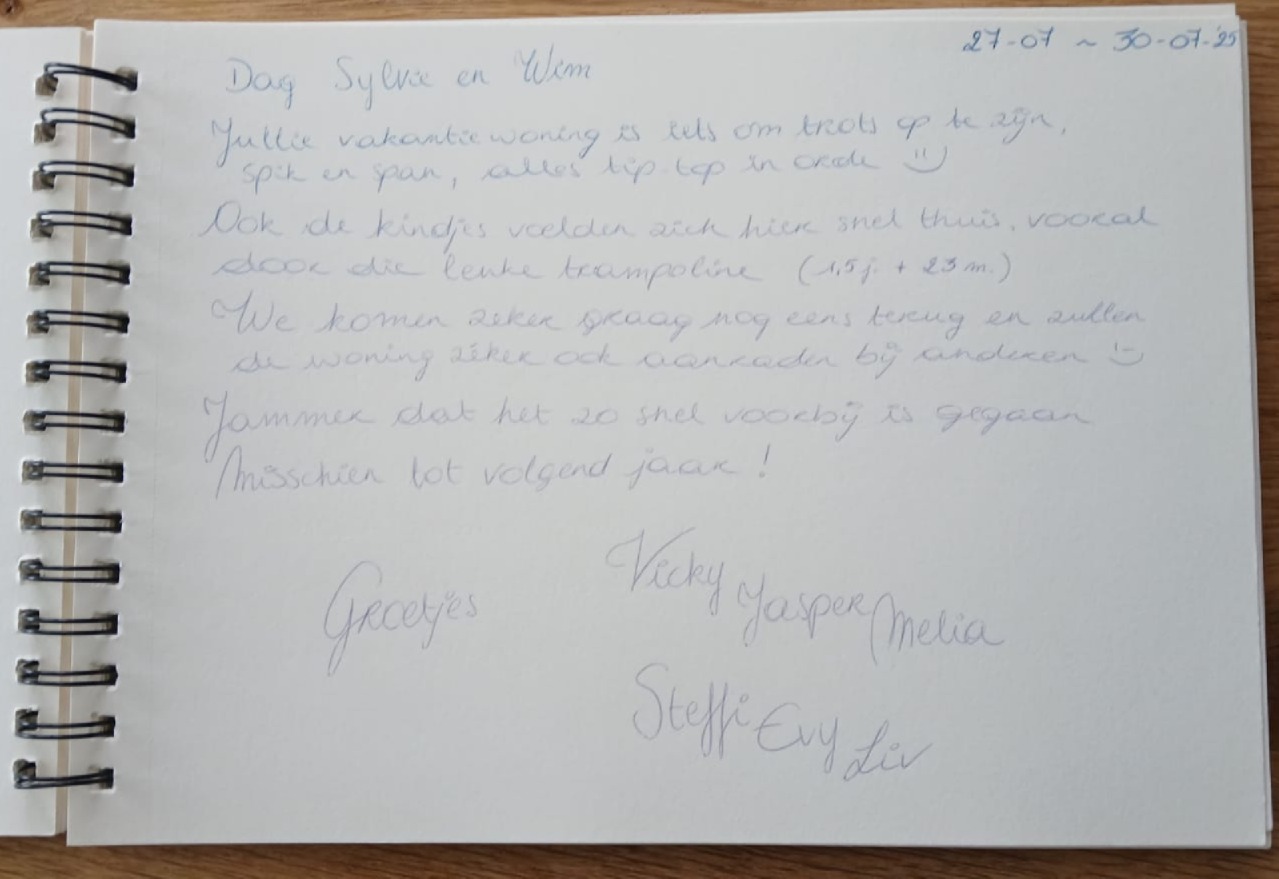 27-07 ~ 30-07-'25
Dag Sylvie en Wim
Jullie vakantiewoning is iets om trots op te zijn,
spik en span, alles tip-top in orde :)
Ook de kindjes voelden zich hier snel thuis, vooral
door die leuke trampoline (1,5 j. + 23 m.)
We komen zeker graag nog eens terug en zullen
de woning zeker ook aanraden bij anderen :)
Jammer dat het zo snel voorbij is gegaan
Misschien tot volgend jaar !
Groetjes
Vicky Jasper Melia
Steffi Evy Liv